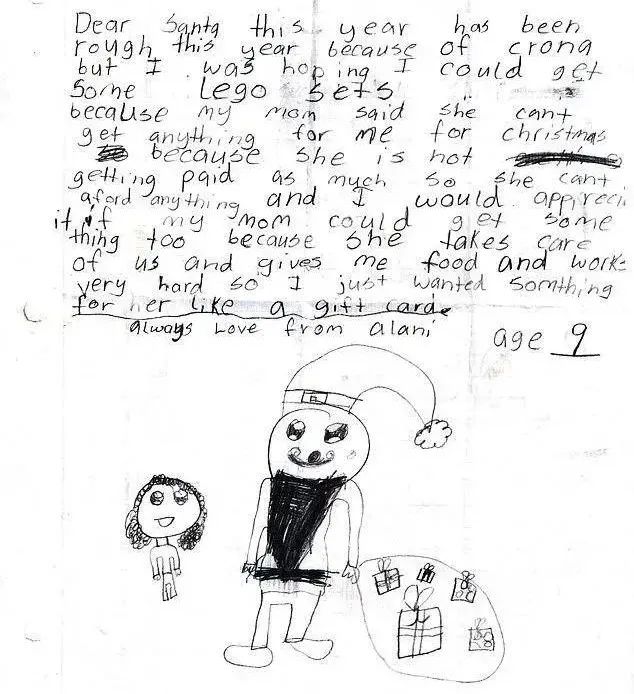 Dear Santa this year has been
rough this year because of crona
but I was hoping I could get
Some Lego sets
because my mom said she cant
get anything for me for christmas
because she is not
getting paid as much so she cant
aford anything and I would appreci
it if my mom could get some
thing too because she takes care
of us and gives me food and works
very hard so I just wanted somthing
for her like a gift card.
always Love from alani
age 9